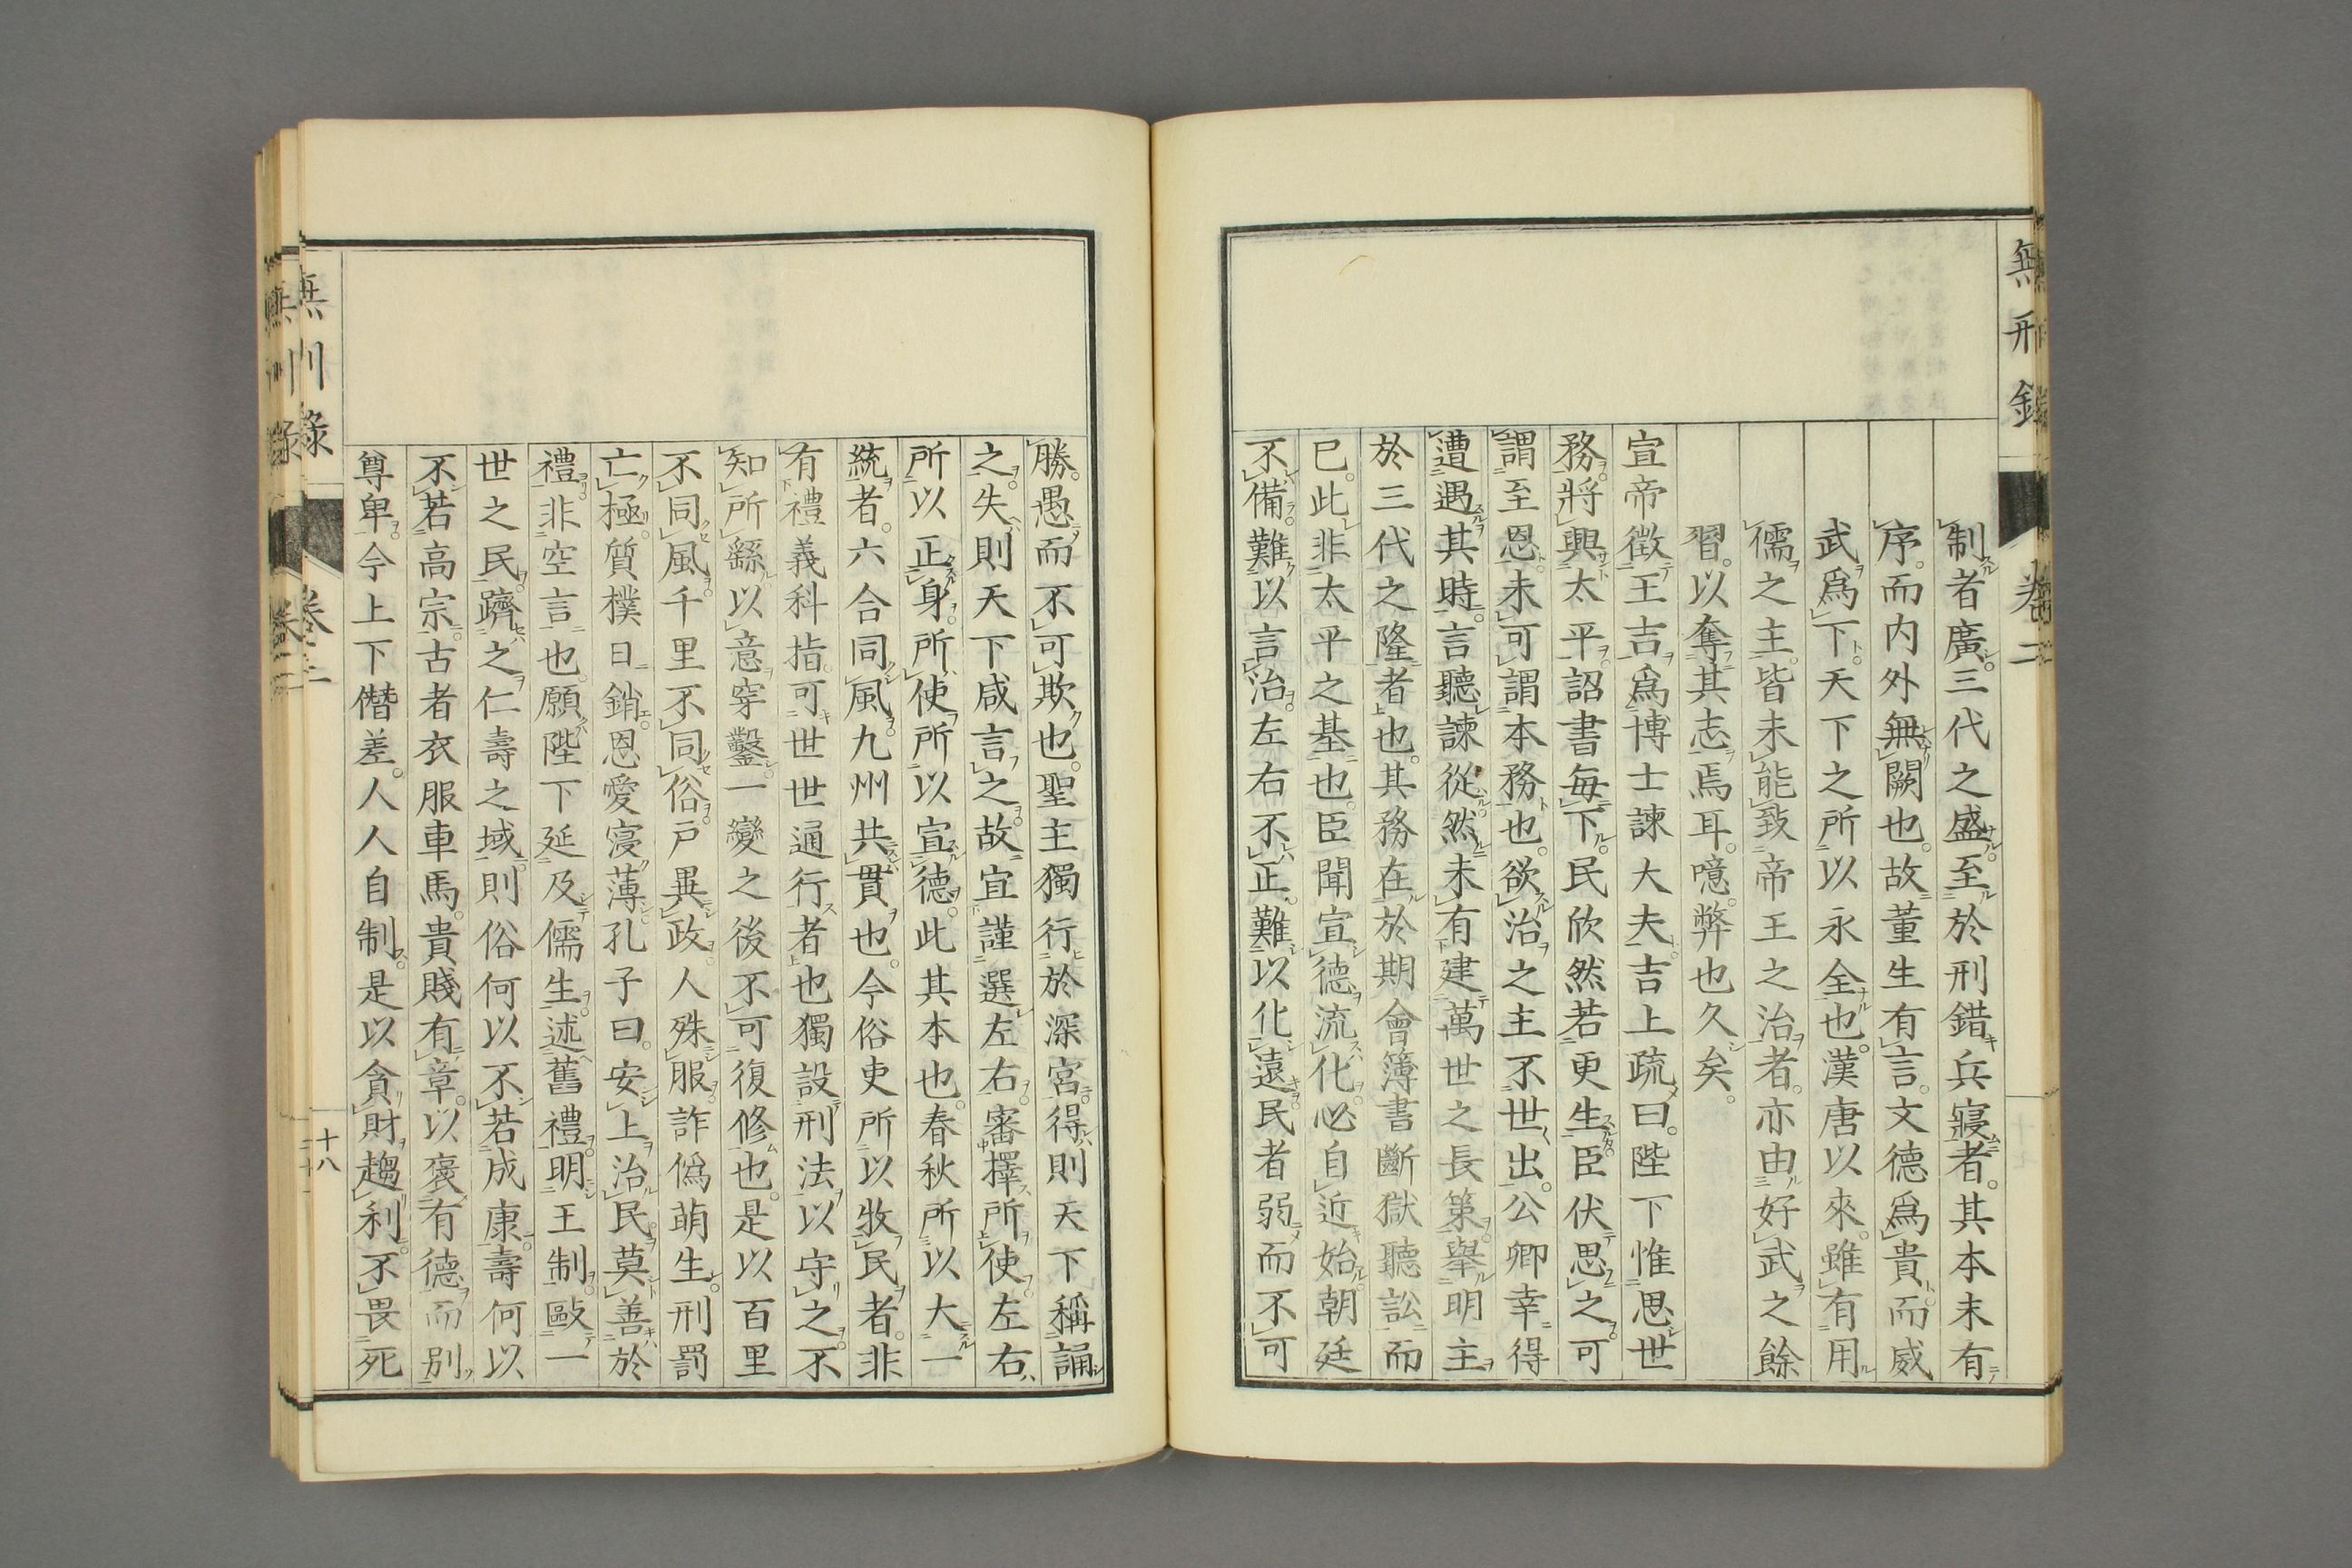 無刑録
卷二
制者廣。三代之盛。至於刑錯兵寢者。其本末有
序。而内外無闕也。故董生有言。文德爲貴。而威
武爲下。天下之所以永全也。漢唐以來。雖有用
儒之主。皆未能致帝王之治者。亦由好武之餘
習。以奪其志焉耳。噫。弊也久矣。
宣帝徵王吉爲博士諫大夫。吉上疏曰。陛下惟思世
務。將興太平。詔書毎下。民欣然若更生。臣伏思之。可
謂至恩。未可謂本務也。欲治之主不世出。公卿幸得
遭遇其時。言聽諫從。然未有建萬世之長策。舉明主
於三代之隆者也。其務在於期會簿書斷獄聽訟而
已。此非太平之基也。臣聞宣德流化。必自近始。朝廷
不備。難以言治。左右不正。難以化遠。民者弱而不可
勝。愚而不可欺也。聖主獨行於深宮。得則天下稱誦
之。失則天下咸言之。故宜謹選左右。審擇所使。左右
所以正身。所使所以宣德。此其本也。春秋所以大一
統者。六合同風。九州共貫也。今俗吏所以牧民者。非
有禮義科指。可世世通行者也。獨設刑法以守之。不
知所繇。以意穿鑿。一變之後不可復修也。是以百里
不同風。千里不同俗。戸異政。人殊服。詐僞萌生。刑罰
亡極。質樸日銷。恩愛寖薄。孔子曰。安上治民莫善於
禮。非空言也。願陛下延及儒生。述舊禮。明王制。敺一
世之民。躋之仁壽之域。則俗何以不若成康。壽何以
不若高宗。古者衣服車馬。貴賤有章。以褒有德而別
尊卑。今上下僭差。人人自制。是以貪財趨利。不畏死
卷二
十八